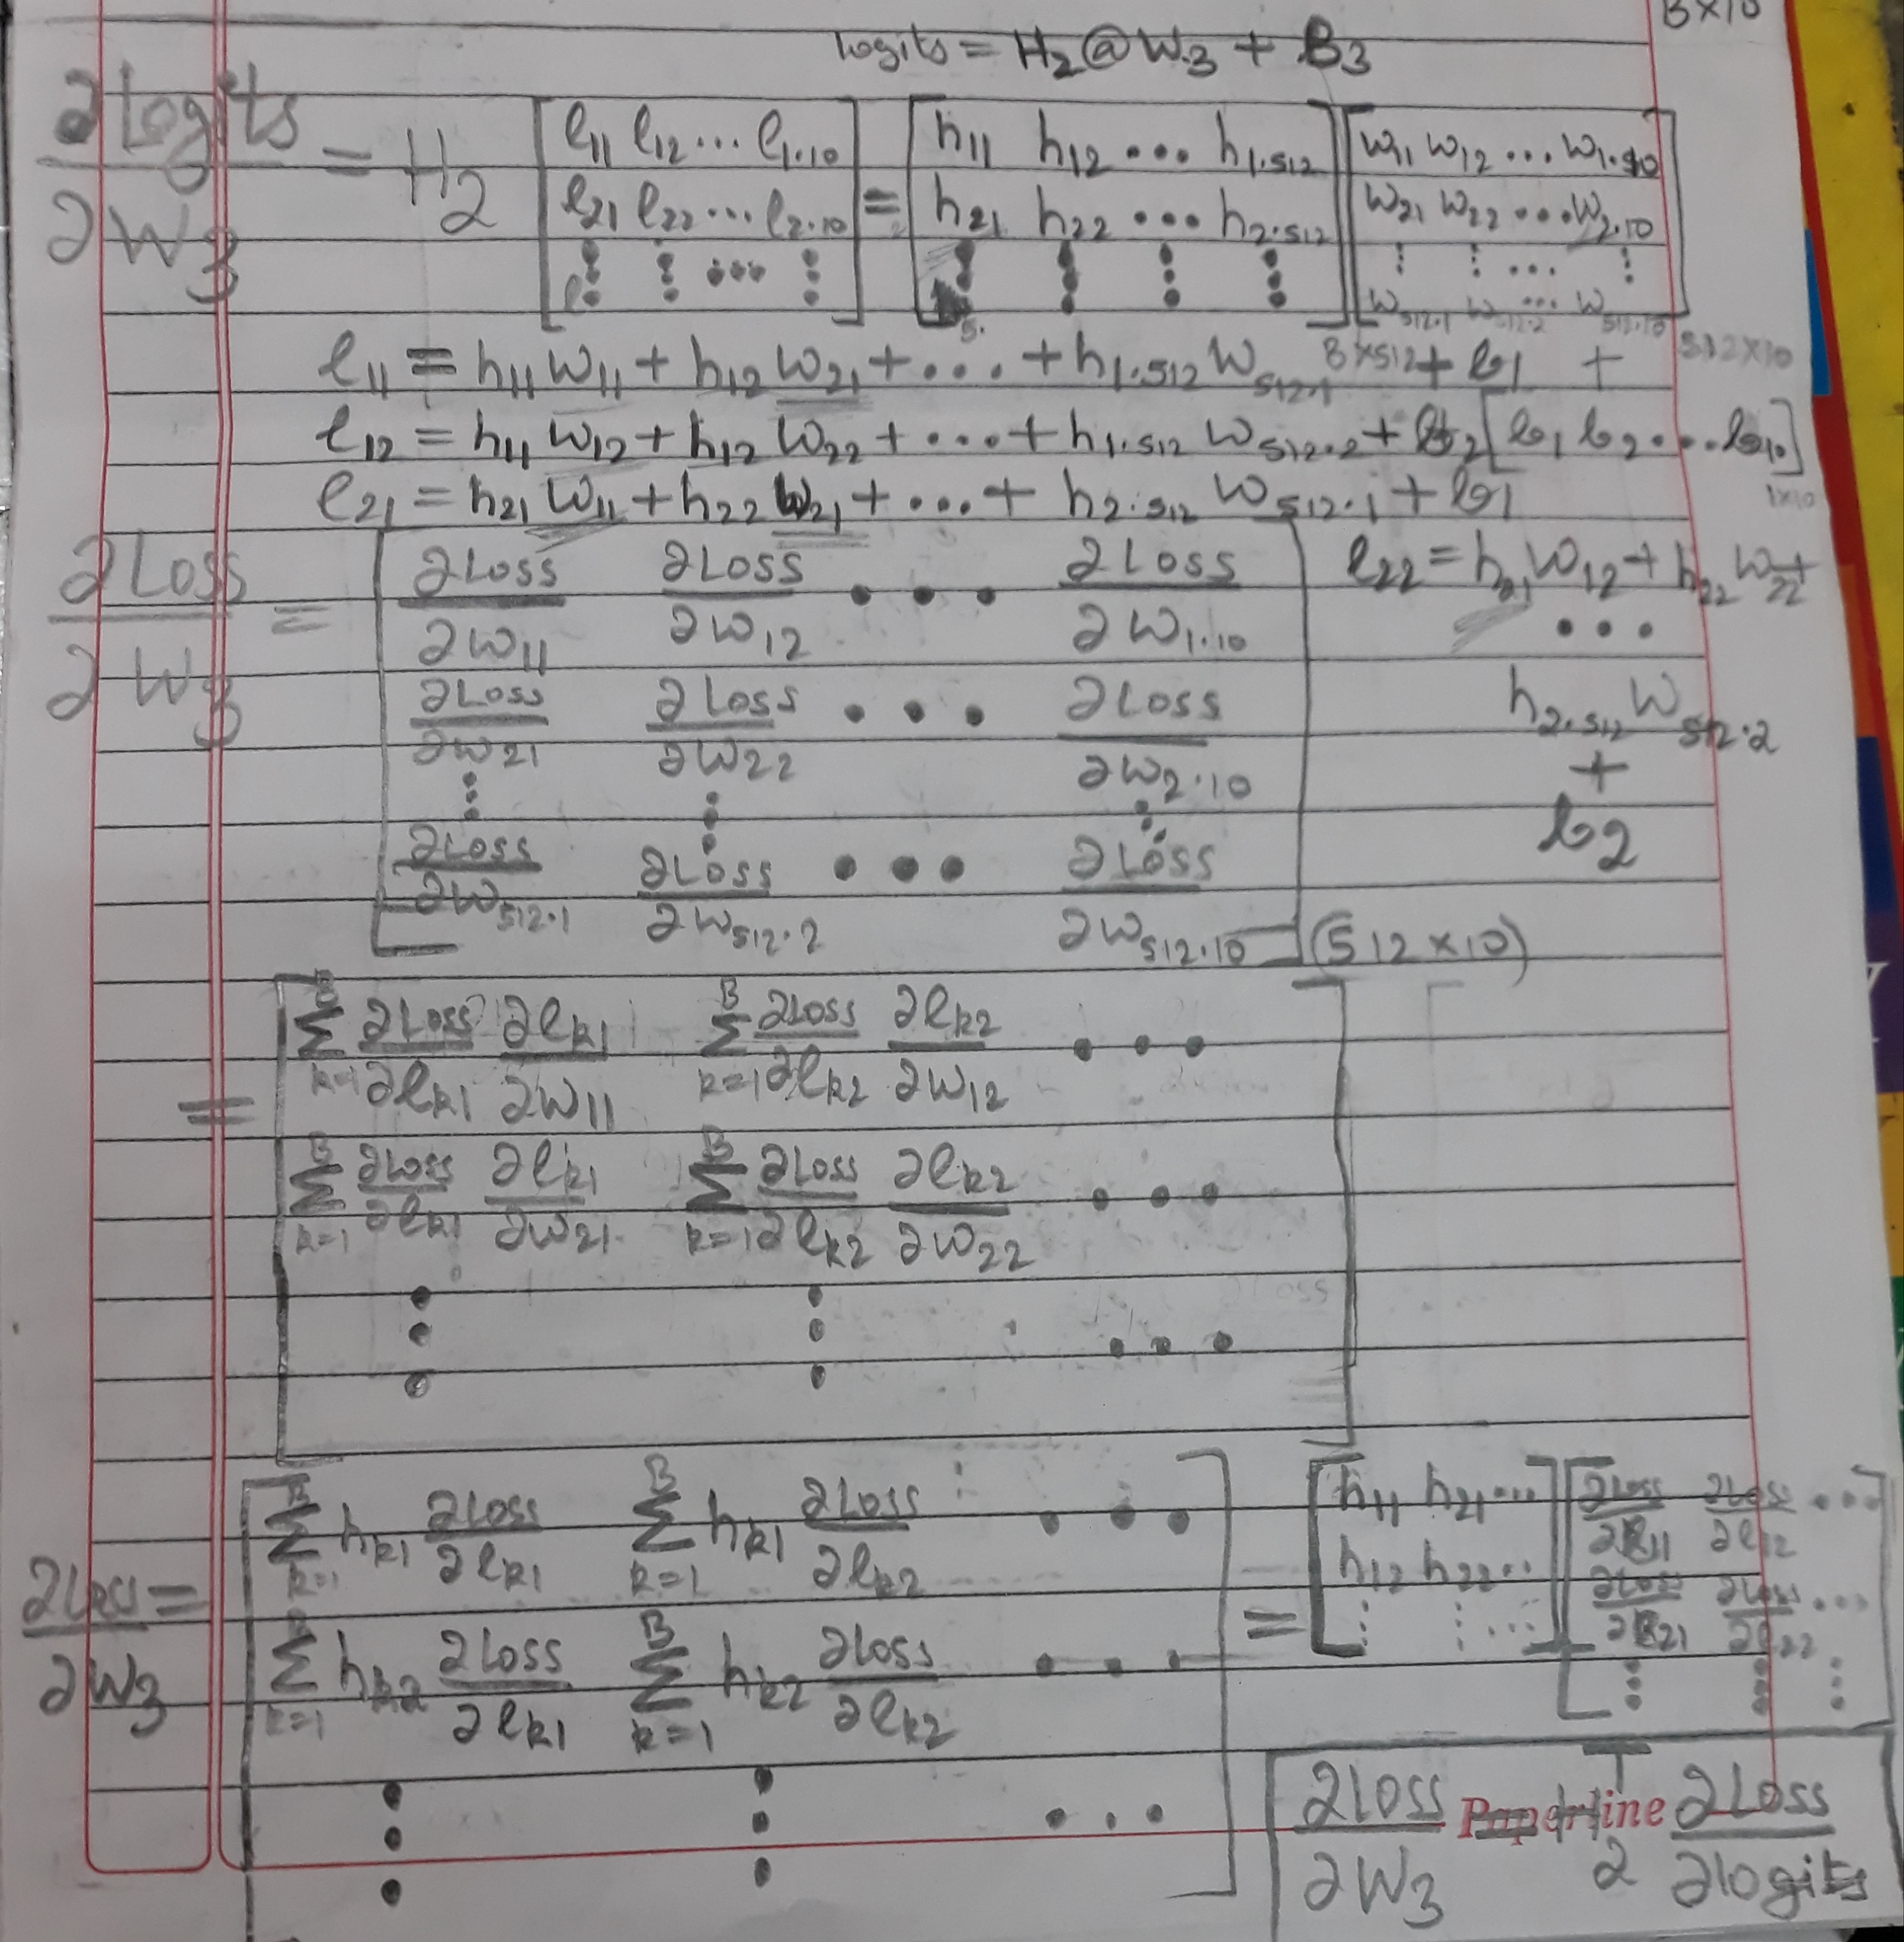 B×10
logits = H₂@W₃ + B₃
∂Logits/∂W₃ = H₂
[l₁₁ l₁₂ ... l₁.₁₀; l₂₁ l₂₂ ... l₂.₁₀; ⋮ ⋮ ... ⋮] = [h₁₁ h₁₂ ... h₁.₅₁₂; h₂₁ h₂₂ ... h₂.₅₁₂; ⋮ ⋮ ⋮ ⋮] [w₁₁ w₁₂ ... w₁.₁₀; w₂₁ w₂₂ ... w₂.₁₀; ⋮ ⋮ ... ⋮; w₅₁₂.₁ w₅₁₂.₂ ... w₅₁₂.₁₀]
B×512 + 512×10
l₁₁ = h₁₁w₁₁ + h₁₂w₂₁ + ... + h₁.₅₁₂w₅₁₂.₁ + b₁
l₁₂ = h₁₁w₁₂ + h₁₂w₂₂ + ... + h₁.₅₁₂w₅₁₂.₂ + b₂ [b₁ b₂ ... b₁₀]
1×10
l₂₁ = h₂₁w₁₁ + h₂₂w₂₁ + ... + h₂.₅₁₂w₅₁₂.₁ + b₁
l₂₂ = h₂₁w₁₂ + h₂₂w₂₂ +
...
h₂.₅₁₂w₅₁₂.₂
+
b₂
∂Loss/∂W₃ = [∂Loss/∂w₁₁ ∂Loss/∂w₁₂ ... ∂Loss/∂w₁.₁₀
∂Loss/∂w₂₁ ∂Loss/∂w₂₂ ... ∂Loss/∂w₂.₁₀
⋮ ⋮ ⋮
∂Loss/∂w₅₁₂.₁ ∂Loss/∂w₅₁₂.₂ ... ∂Loss/∂w₅₁₂.₁₀] (512×10)
= [Σₖ₌₁ᴮ ∂Loss/∂lₖ₁ ∂lₖ₁/∂w₁₁ Σₖ₌₁ᴮ ∂Loss/∂lₖ₂ ∂lₖ₂/∂w₁₂ ...
Σₖ₌₁ᴮ ∂Loss/∂lₖ₁ ∂lₖ₁/∂w₂₁ Σₖ₌₁ᴮ ∂Loss/∂lₖ₂ ∂lₖ₂/∂w₂₂ ...
⋮ ⋮ ...]
∂Loss/∂W₃ = [Σₖ₌₁ᴮ hₖ₁ ∂Loss/∂lₖ₁ Σₖ₌₁ᴮ hₖ₁ ∂Loss/∂lₖ₂ ...
Σₖ₌₁ᴮ hₖ₂ ∂Loss/∂lₖ₁ Σₖ₌₁ᴮ hₖ₂ ∂Loss/∂lₖ₂ ...
⋮ ⋮ ...]
= [h₁₁ h₂₁ ...; h₁₂ h₂₂ ...; ⋮ ⋮ ...] [∂Loss/∂l₁₁ ∂Loss/∂l₁₂ ...; ∂Loss/∂l₂₁ ∂Loss/∂l₂₂ ...; ⋮ ⋮ ⋮]
∂Loss/∂W₃ = H₂ᵀ ∂Loss/∂logits
Paperline